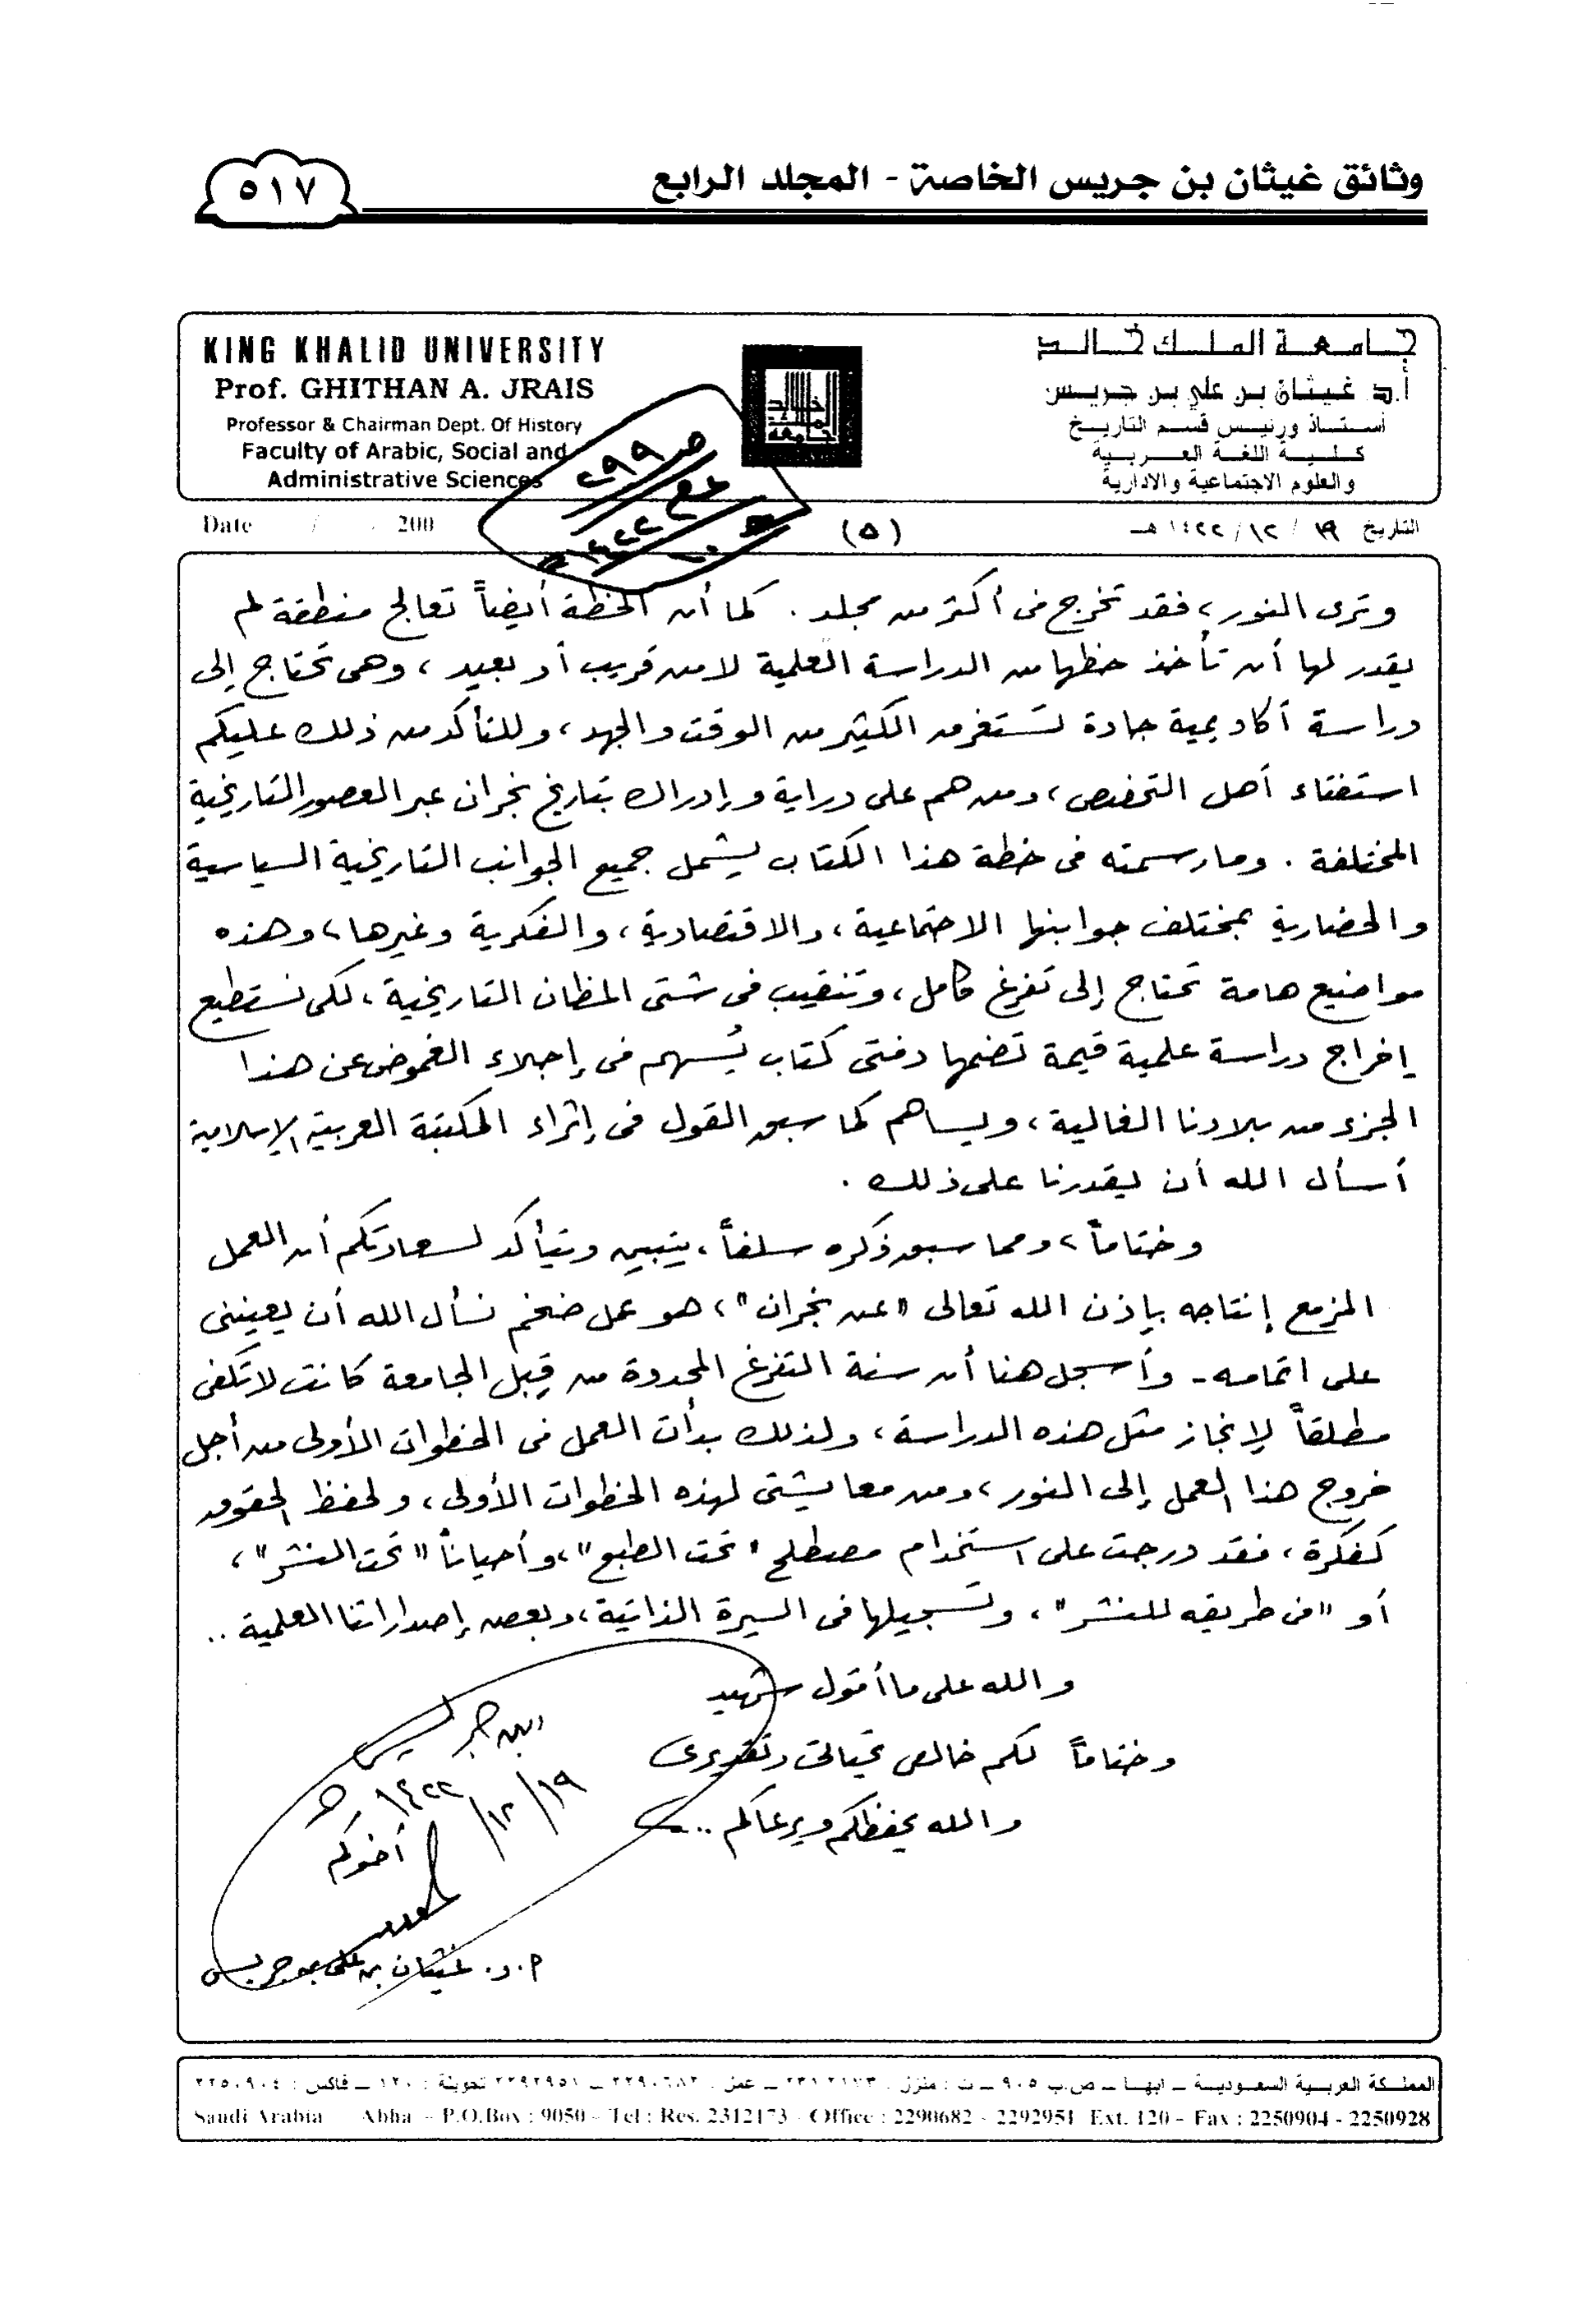 وثائق غيثان بن جريس الخاصة - المجلد الرابع
٥١٧
جامعة الملك خالد
أ.د. غيثان بن علي بن جريس
أستاذ ورئيس قسم التاريخ
كلية اللغة العربية
والعلوم الاجتماعية والادارية
KING KHALID UNIVERSITY
Prof. GHITHAN A. JRAIS
Professor & Chairman Dept. Of History
Faculty of Arabic, Social and
Administrative Sciences
ص ٢٩٩
١٤٢٢
التاريخ ١٩ / ١٢ / ١٤٢٢ هـ
(٥)
Date / / 200
وترى النور، فقد تخرج في أكثر من مجلد. كما أن الخطة أيضاً تعالج منطقة لم
يقدر لها أن تأخذ حظها من الدراسة العلمية لا من قريب أو بعيد، وهي تحتاج إلى
دراسة أكاديمية جادة تستغرق الكثير من الوقت والجهد، وللتأكد من ذلك عليكم
استفتاء أهل التخصص، ومن هم على دراية وإدراك بتاريخ نجران عبر العصور التاريخية
المختلفة. وما رسمته في خطة هذا الكتاب يشمل جميع الجوانب التاريخية السياسية
والحضارية بمختلف جوانبها الاجتماعية، والاقتصادية، والفكرية وغيرها، وهذه
مواضيع هامة تحتاج إلى تفرغ كامل، وتنقيب في شتى المظان التاريخية، لكي نستطيع
إخراج دراسة علمية قيمة تضمها دفتي كتاب يُسهم في إجلاء الغموض عن هذا
الجزء من بلادنا الغالية، ويساهم كما سبق القول في إثراء المكتبة العربية الإسلامية
أسأل الله أن يقدرنا على ذلك.
وختاماً، ومما سبق ذكره سلفاً، يتبين ويتأكد لسعادتكم أن العمل
المزمع إنتاجه بإذن الله تعالى "عن نجران"، هو عمل ضخم نسأل الله أن يعينني
على اتمامه - وأسجل هنا أن سنة التفرغ المحدودة من قِبل الجامعة كانت لا تكفي
مطلقاً لإنجاز مثل هذه الدراسة، ولذلك بدأت العمل في الخطوات الأولى من أجل
خروج هذا العمل إلى النور، ومن معايشتي لهذه الخطوات الأولى، ولحفظ الحقوق
كفكرة، فقد درجت على استخدام مصطلح "تحت الطبع"، وأحياناً "تحت النشر"،
أو "في طريقه للنشر"، وتسجيلها في السيرة الذاتية، وبعض إصداراتنا العلمية ..
والله على ما أقول شهيد
وختاماً لكم خالص تحياتي وتقديري
والله يحفظكم ويرعاكم ..
ابن جريس
١٩/١٢/١٤٢٢ هـ
أخوكم
أ.د. غيثان بن علي بن جريس
المملكة العربية السعودية ــ ابها ــ ص.ب ٩٠٥٠ ــ ت : منزل : ٢٣١٢١٧٣ ــ عمل : ٢٢٩٠٦٨٢ ــ ٢٢٩٢٩٥١ تحويلة : ١٢٠ ــ فاكس : ٢٢٥٠٩٠٤
Saudi Arabia Abha - P.O.Box : 9050 - Tel : Res. 2312173 - Office : 2290682 - 2292951 Ext. 120 - Fax : 2250904 - 2250928